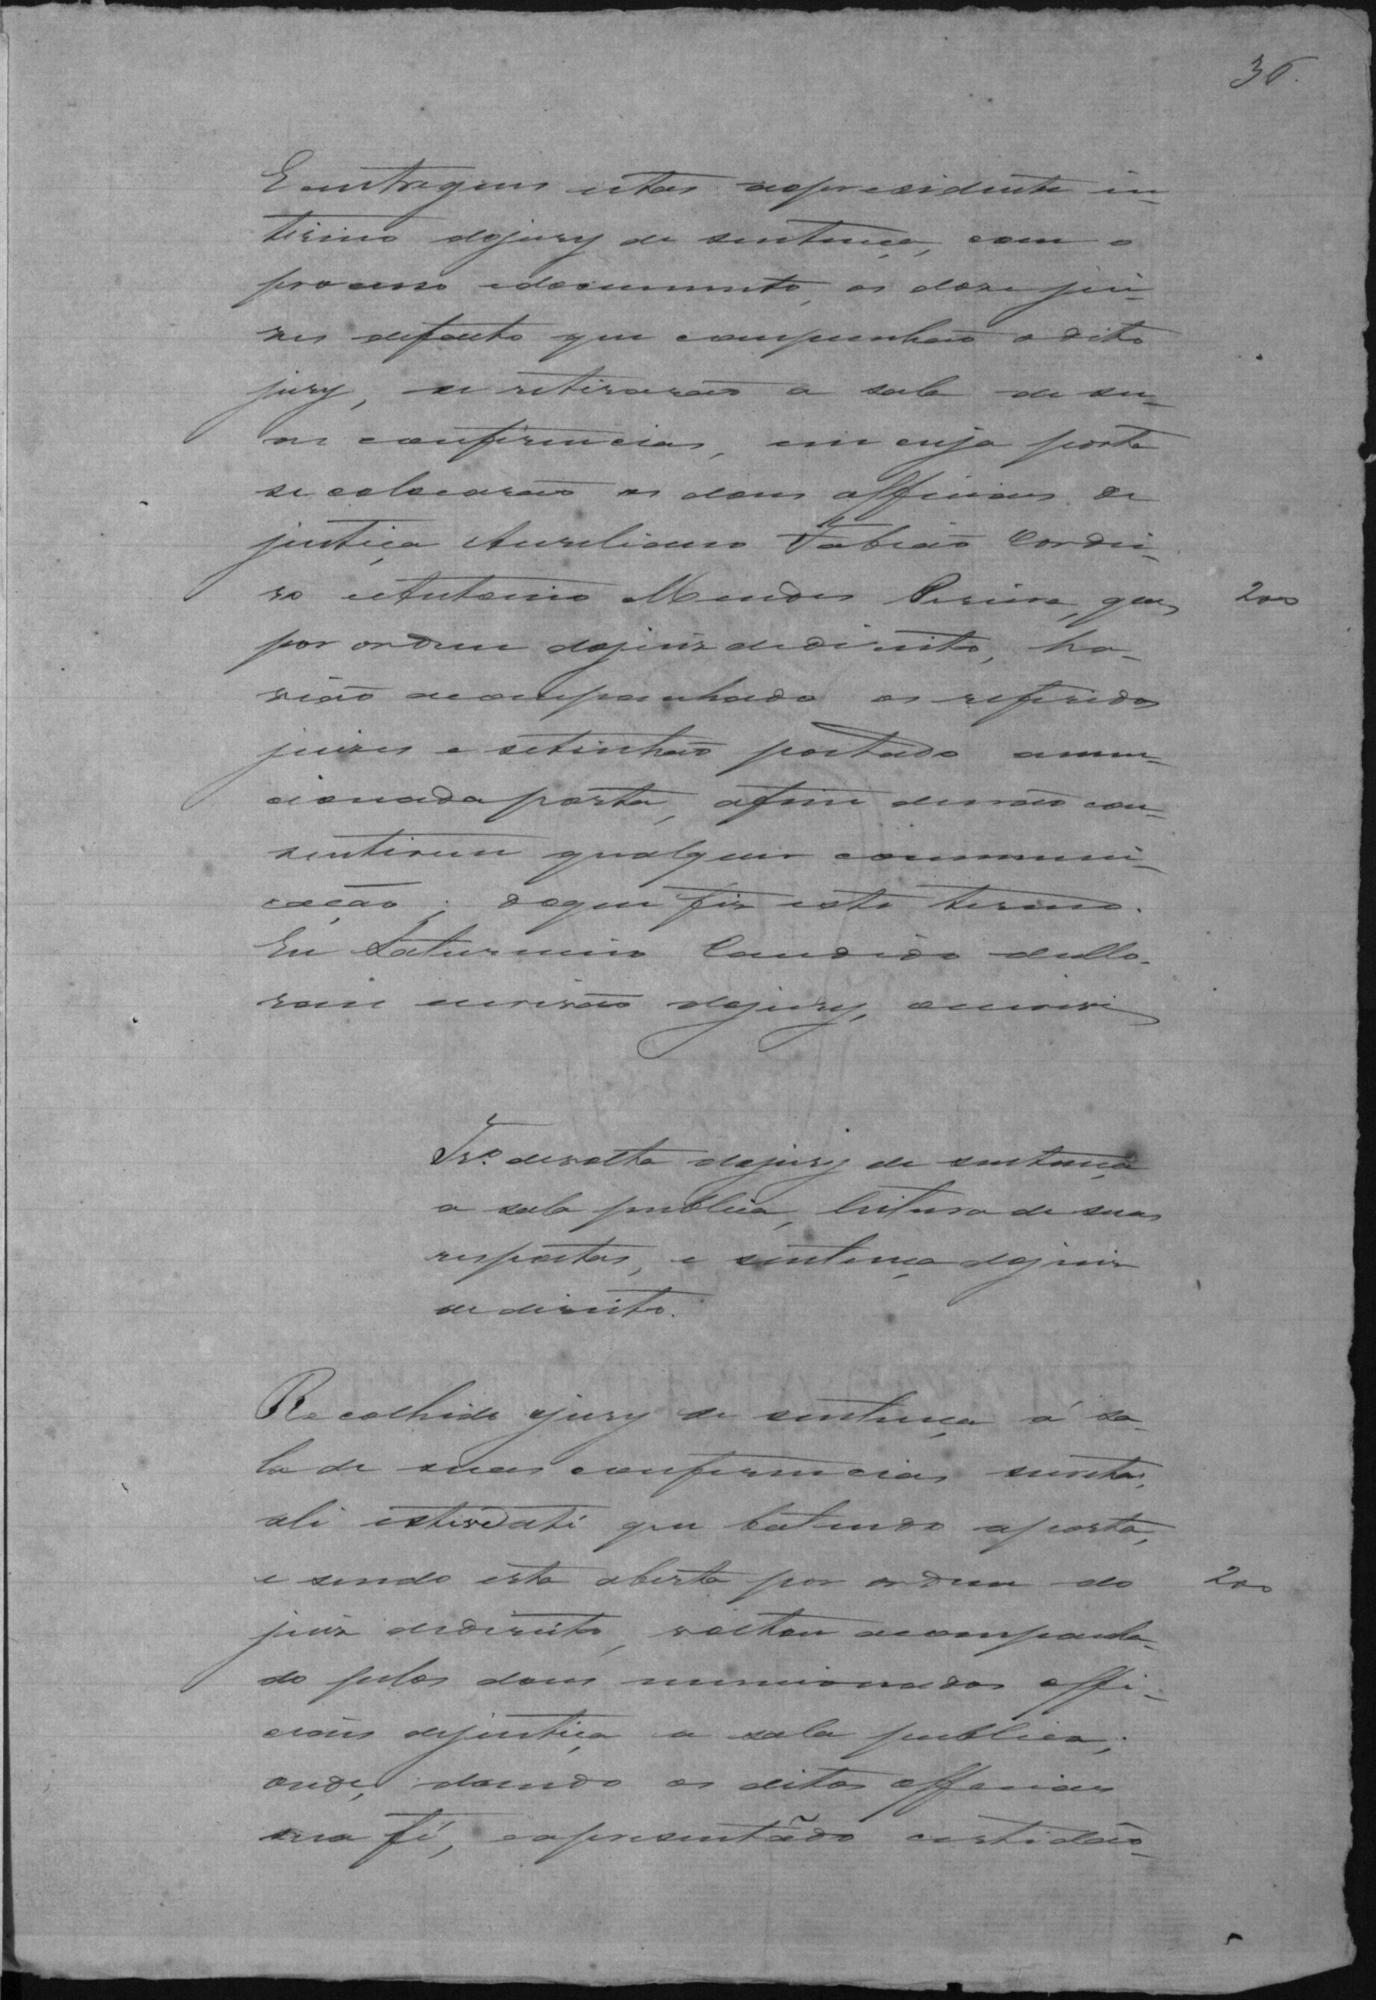 36.
E entregues estas ao presidente in-
terino do jury de sentença, com o
processo e documento, os doze jui-
zes de facto que compunhão o dito
jury, se retirarão a sala de su-
as conferencias, em cuja porta
se collocarão os dous officiaes de
justiça Aureliano Fabião Cordei-
ro e Antonio Mendes Pereira, que, 200
por ordem do juiz de direito, ha-
vião acompanhado os referidos
juizes e se tinhão postado a men-
cionada porta, afim de não con-
sentirem qualquer communi-
cação; do que fiz este termo.
Eu Saturnino Candido de Mo-
raes escrivão do jury, o escrevi
Tr.º de volta do jury de sentença
a sala publica, leitura de suas
respostas, e sentença do juiz
de direito.
Recolhido o jury de sentença á sa-
la de suas conferencias secretas,
ali esteve até que batendo a porta,
e sendo esta aberta por ordem do 200
juiz de direito, voltou acompanha-
do pelos dous mencionados offi-
ciaes de justiça a sala publica;
onde, dando os ditos officiaes
sua fé, e apresentãdo certidão